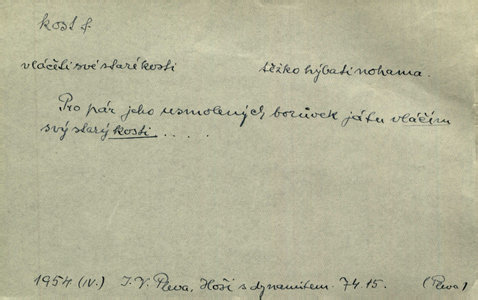 kost f.
vláčeti své staré kosti těžko hýbati nohama.
Pro pár jeho usmolených borůvek já tu vláčím
svý starý kosti . . . . .
1954 (IV.) J. V. Pleva, Hoši s dynamitem. 74.15. (Pleva)